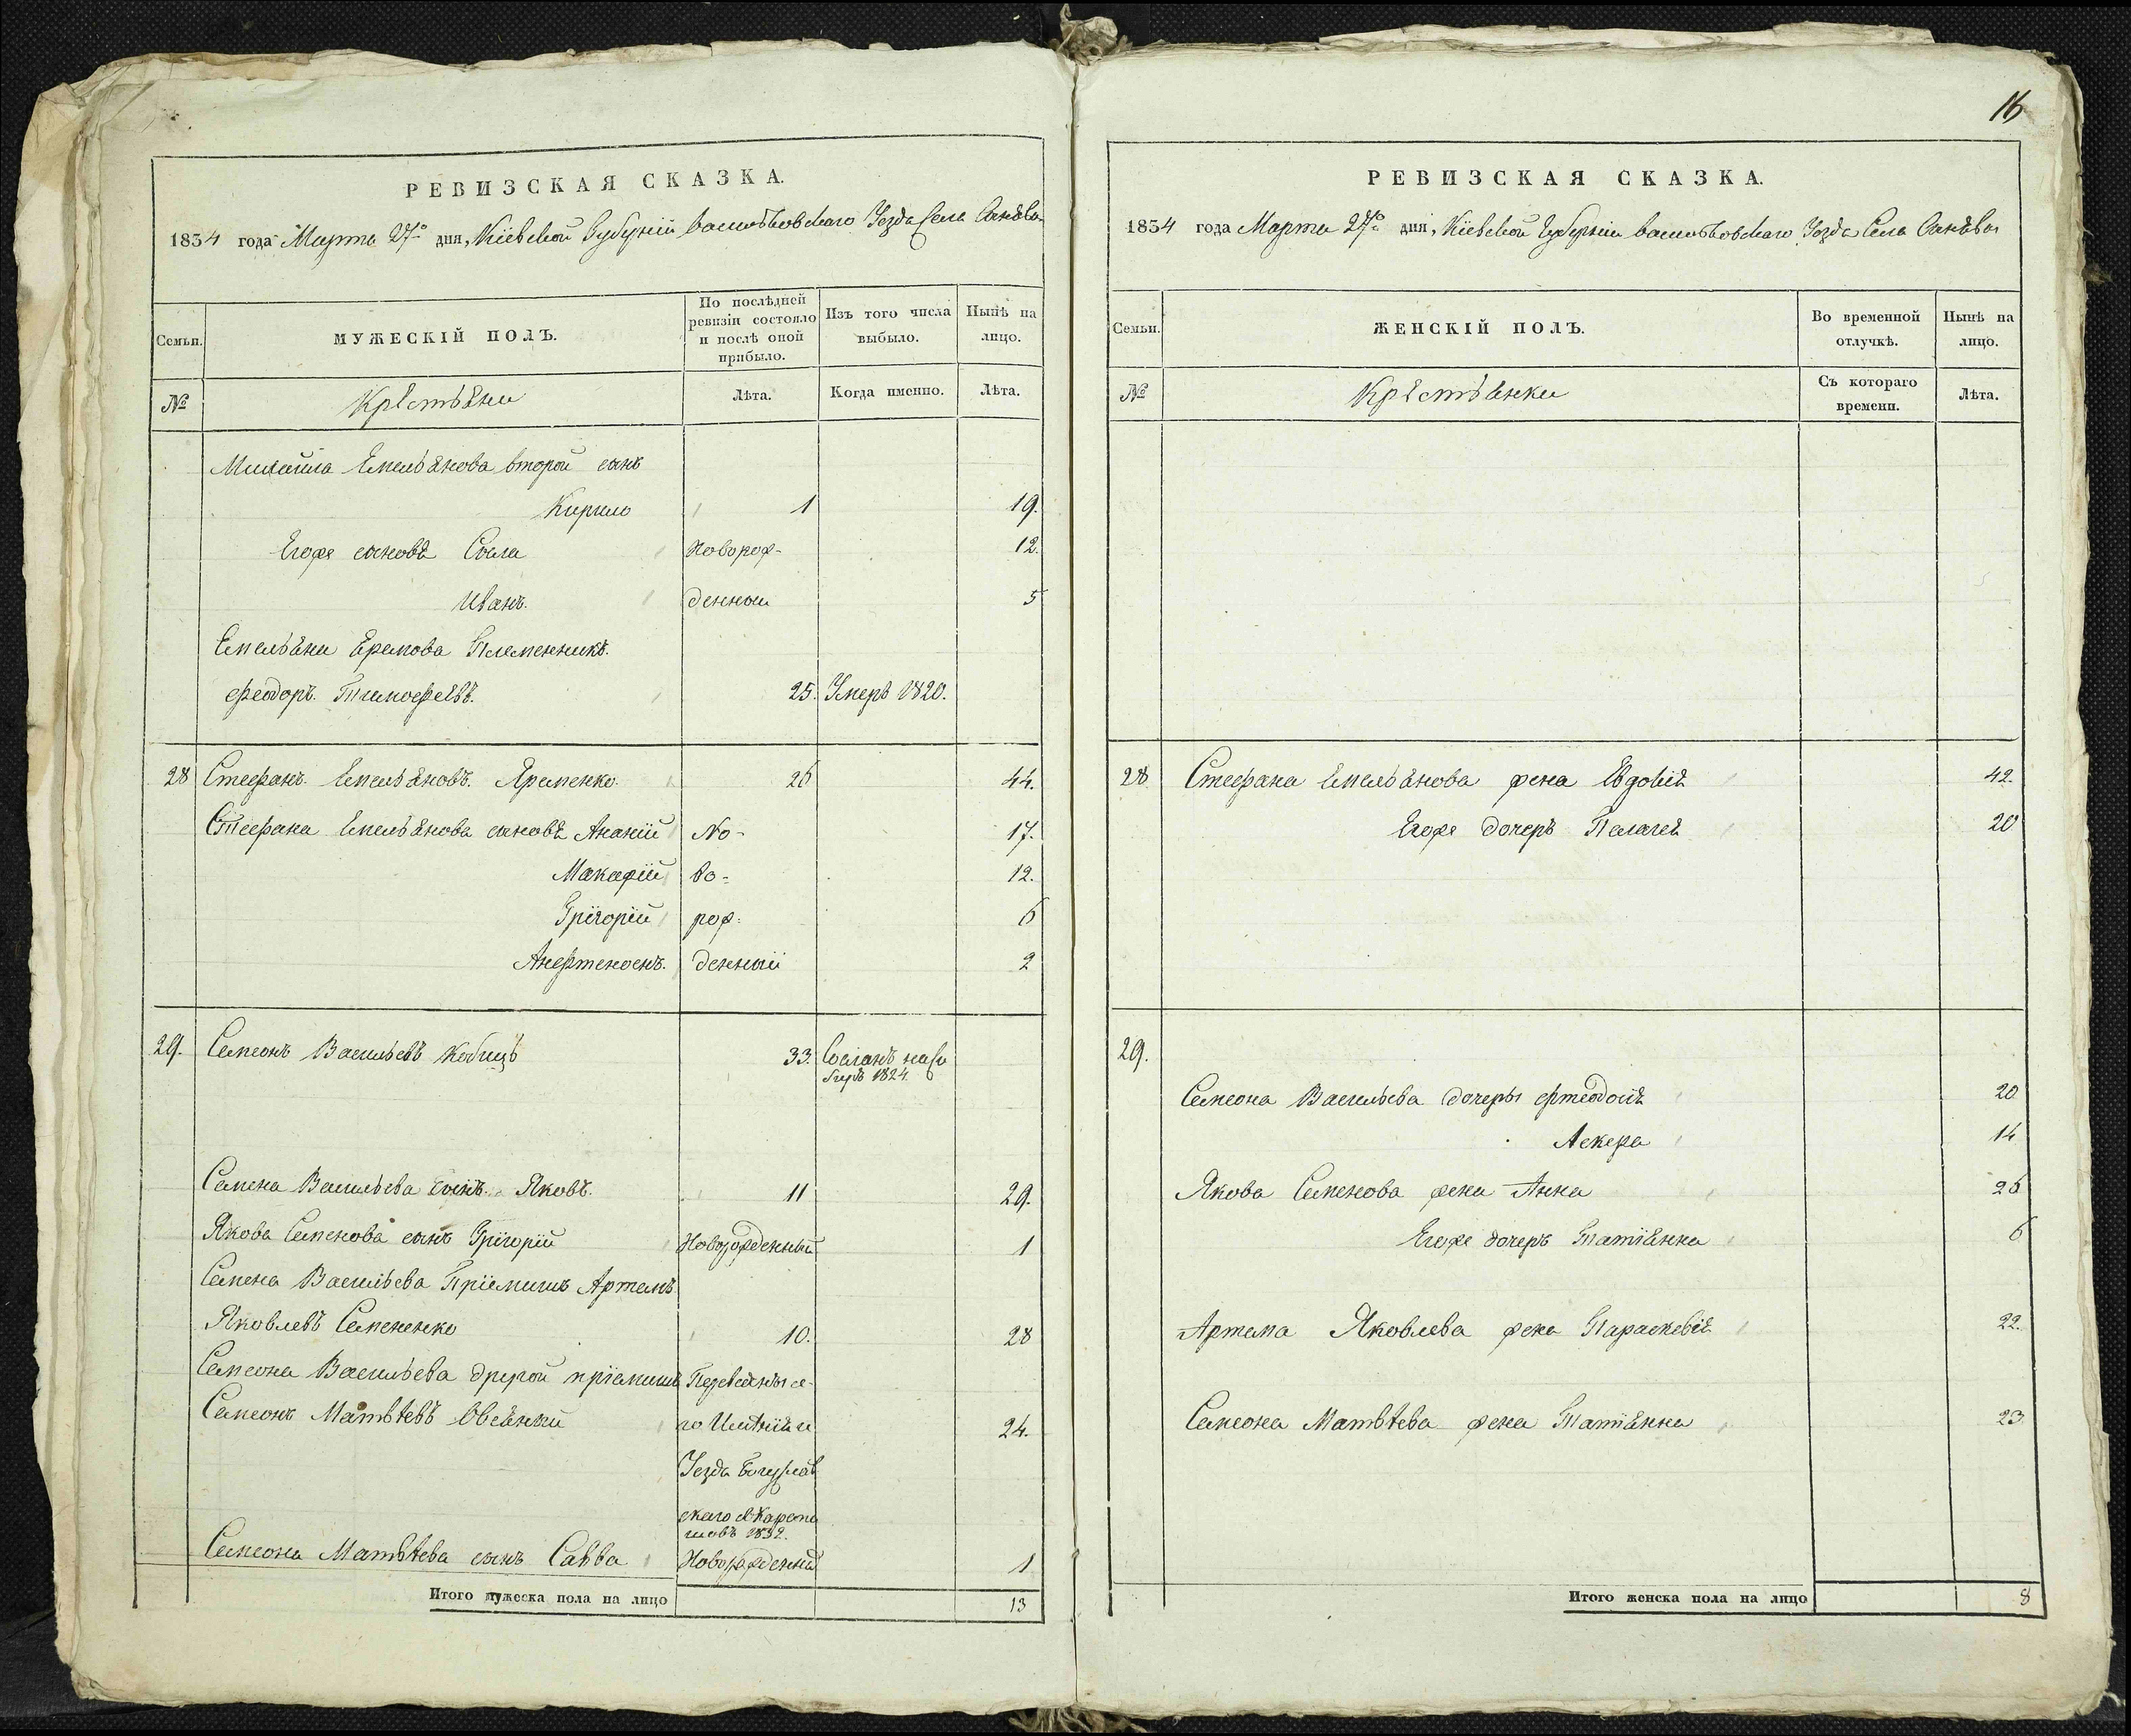 РЕВИЗСКАЯ СКАЗКА.
1834 года Марта 27го дня, Кіевской Губерніи Васильковскаго Уезда Села
Семьи.
МУЖЕСКІЙ ПОЛЪ.
По послѣдней ревизіи состояло и послѣ оной прибыло.
Изъ того числа выбыло.
Нынѣ на лицо.
№
Крестьяни
Лѣта.
Когда именно.
Лѣта.
Михайла Емельянова второй сынъ
Кирило 1 19.
Егоже сыновя Сыла новорож- 12.
Иванъ. денныи 5
Емельяна Еремова Племенникъ.
Феодоръ. Тимофеевъ. 25. Умеръ 1820.
28 Стефанъ. Емельяновъ. Яременко. 26 44.
Стефана Емельянова сыновя Ананій но- 17.
Макарій во- 12.
Грігорій рож- 6
денный 2
29. Семеонъ Васильевъ 33. Сосланъ на Си
биръ 1824.
Семена Васильева сынъ Яковъ. 11 29.
Якова Семенова сынъ Грігорій Новорожденный 1
Семена Васильева Пріемишъ Артемъ
Яковлевъ Семененко 10. 28
Семеона Васильева другой пріемишъ Переведены с
Семеонъ Матвѣевъ 24.
Уезда Богуслав
скаго
1832.
Семеона Матвѣева сынъ Савва Новорожденный 1
Итого мужеска пола на лицо 13
16
РЕВИЗСКАЯ СКАЗКА.
1834 года Марта 27го дня, Кіевской Губерніи Васильковскаго Уезда Села
Семьи.
ЖЕНСКІЙ ПОЛЪ.
Во временной отлучкѣ.
Нынѣ на лицо.
№
Крестьянки
Съ котораго времени.
Лѣта.
28 Стефана Емельянова жена Евдокія 42.
Егоже дочеръ Пелагея 20
29.
Семеона Васильева дочеры 20
14
Якова Семенова жена Анна 26
Егоже дочеръ Татіянна 6
Артема Яковлева жена Параскевія 22.
Семеона Матвѣева жена Татіянна 23
Итого женска пола на лицо 8